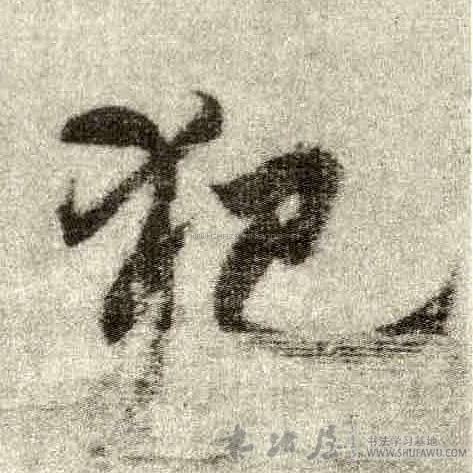 犯
书法学习基地
WWW.SHUFAWU.COM